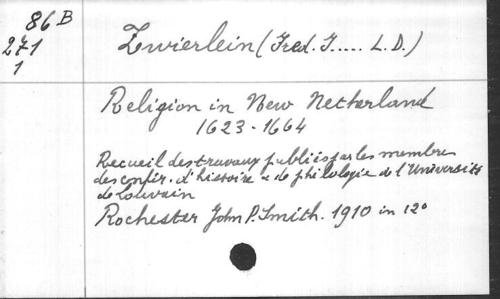 86 B
271
1
Zwierlein (Fred. J..... L. D.)
Religion in New Netherland
1623-1664
Recueil des travaux publiés par les membres
des confér. d'histoire & de philologie de l'Université
de Louvain
Rochester John P. Smith. 1910 in 12°